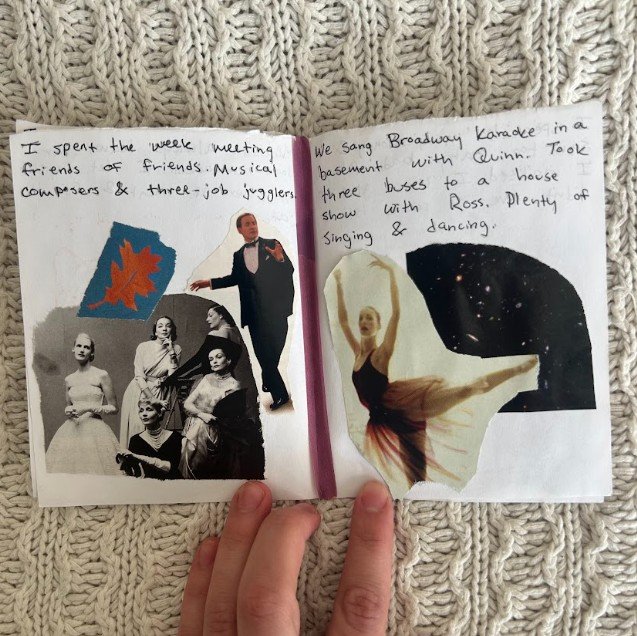 I spent the week meeting
friends of friends. Musical
composers & three-job jugglers.
We sang Broadway Karaoke in a
basement with Quinn. Took
three buses to a house
show with Ross. Plenty of
singing & dancing.